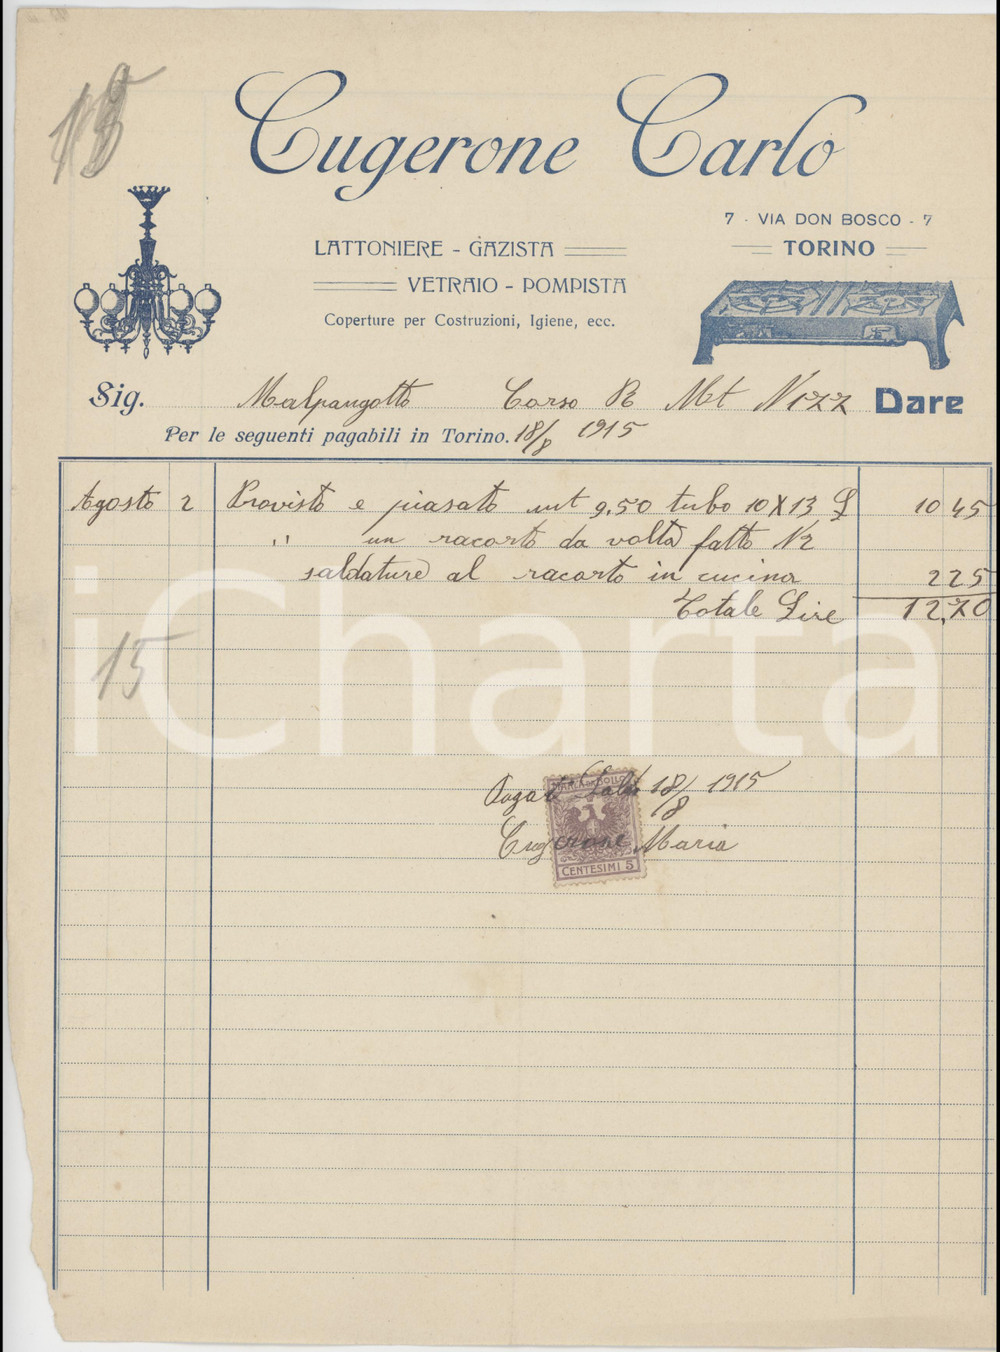 15
Cugerone Carlo
7 - VIA DON BOSCO - 7
TORINO
LATTONIERE - GAZISTA
VETRAIO - POMPISTA
Coperture per Costruzioni, Igiene, ecc.
Sig. Malpangotto Corso R Mt Nizz Dare
Per le seguenti pagabili in Torino. 18/8 1915
Agosto 2 Provisto e piasato mt 9.50 tubo 10 X 13 L 10 45
" un racorto da volta fatto N2
saldature al racorto in cucina 2 25
Totale Lire 12,70
15
iCharta
MARCA DA BOLLO
Pagato Saldo 18/8 1915
Cugerone Maria
CENTESIMI 5